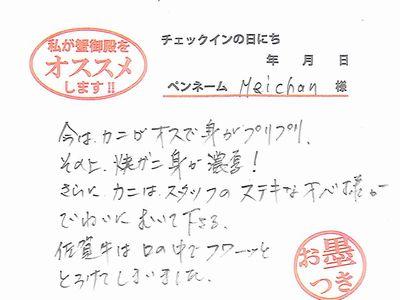 私が蟹御殿を
オススメ
します!!
チェックインの日にち
年 月 日
ペンネーム Meichan 様
今は、カニがオスで身がプリプリ、
その上、焼ガニ身が濃厚!
さらに、カニは、スタッフのステキなオベ様が
でねいにむいて下さる。
佐賀牛は口の中でフワーッと
とろけてしまいました。
お墨
つき